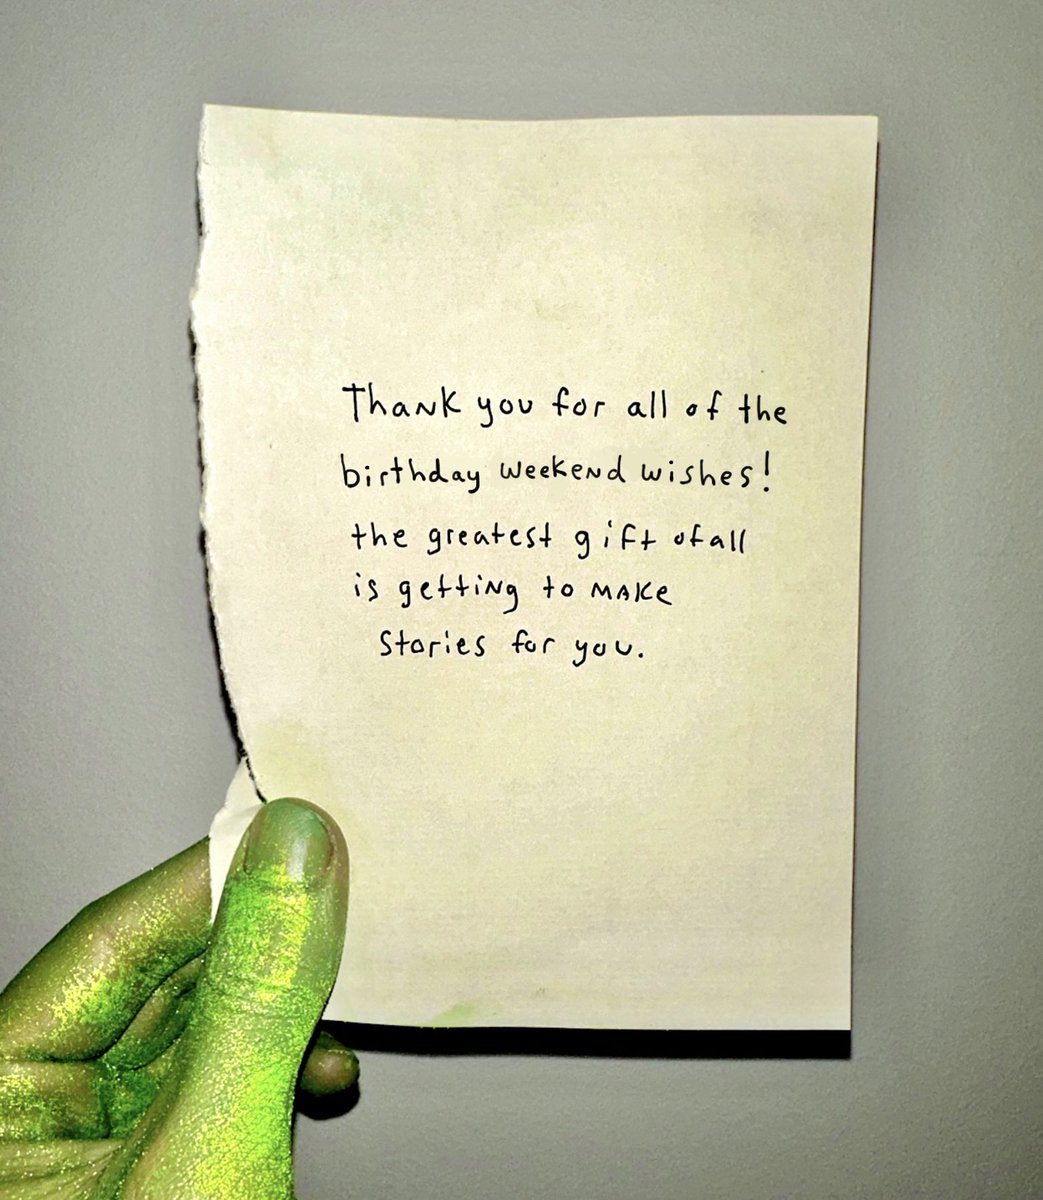 Thank you for all of the
birthday weekend wishes!
the greatest gift of all
is getting to make
stories for you.